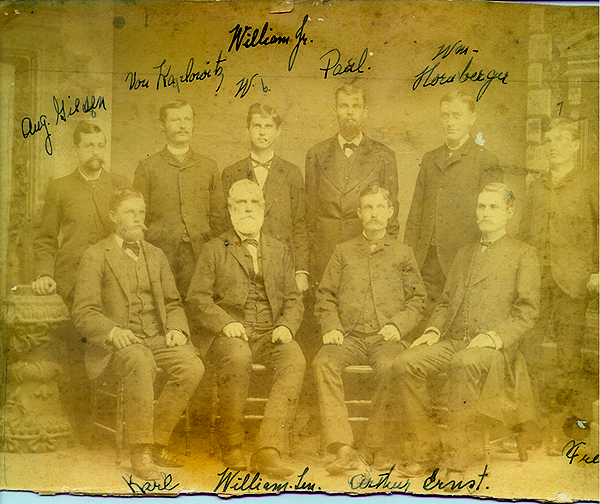 William. Jr.
Von Karlowitz
W. b.
Paul.
Wm.
Hornberger
Aug. Giesen
7
Karl
William. Sen.
Arthur
Ernst.
Fre